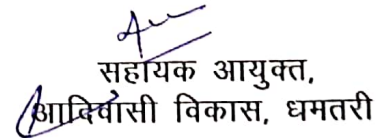 सहायक आयुक्त,
आदिवासी विकास, धमतरी